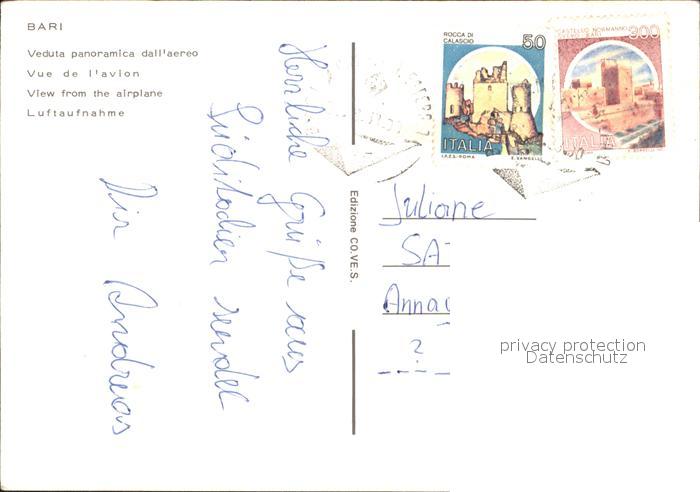 BARI
Veduta panoramica dall'aereo
Vue de l'avion
View from the airplane
Luftaufnahme
Herzliche Grüße aus
Süditalien sendet
Dir Andreas
Edizione CO.VE.S.
ROCCA DI
CALASCIO
50
ITALIA
I.P.Z.S.-ROMA
CASTELLO NORMANNO
SVEVO BARI
300
ITALIA
Juliane
SA
Anna
?
privacy protection
Datenschutz